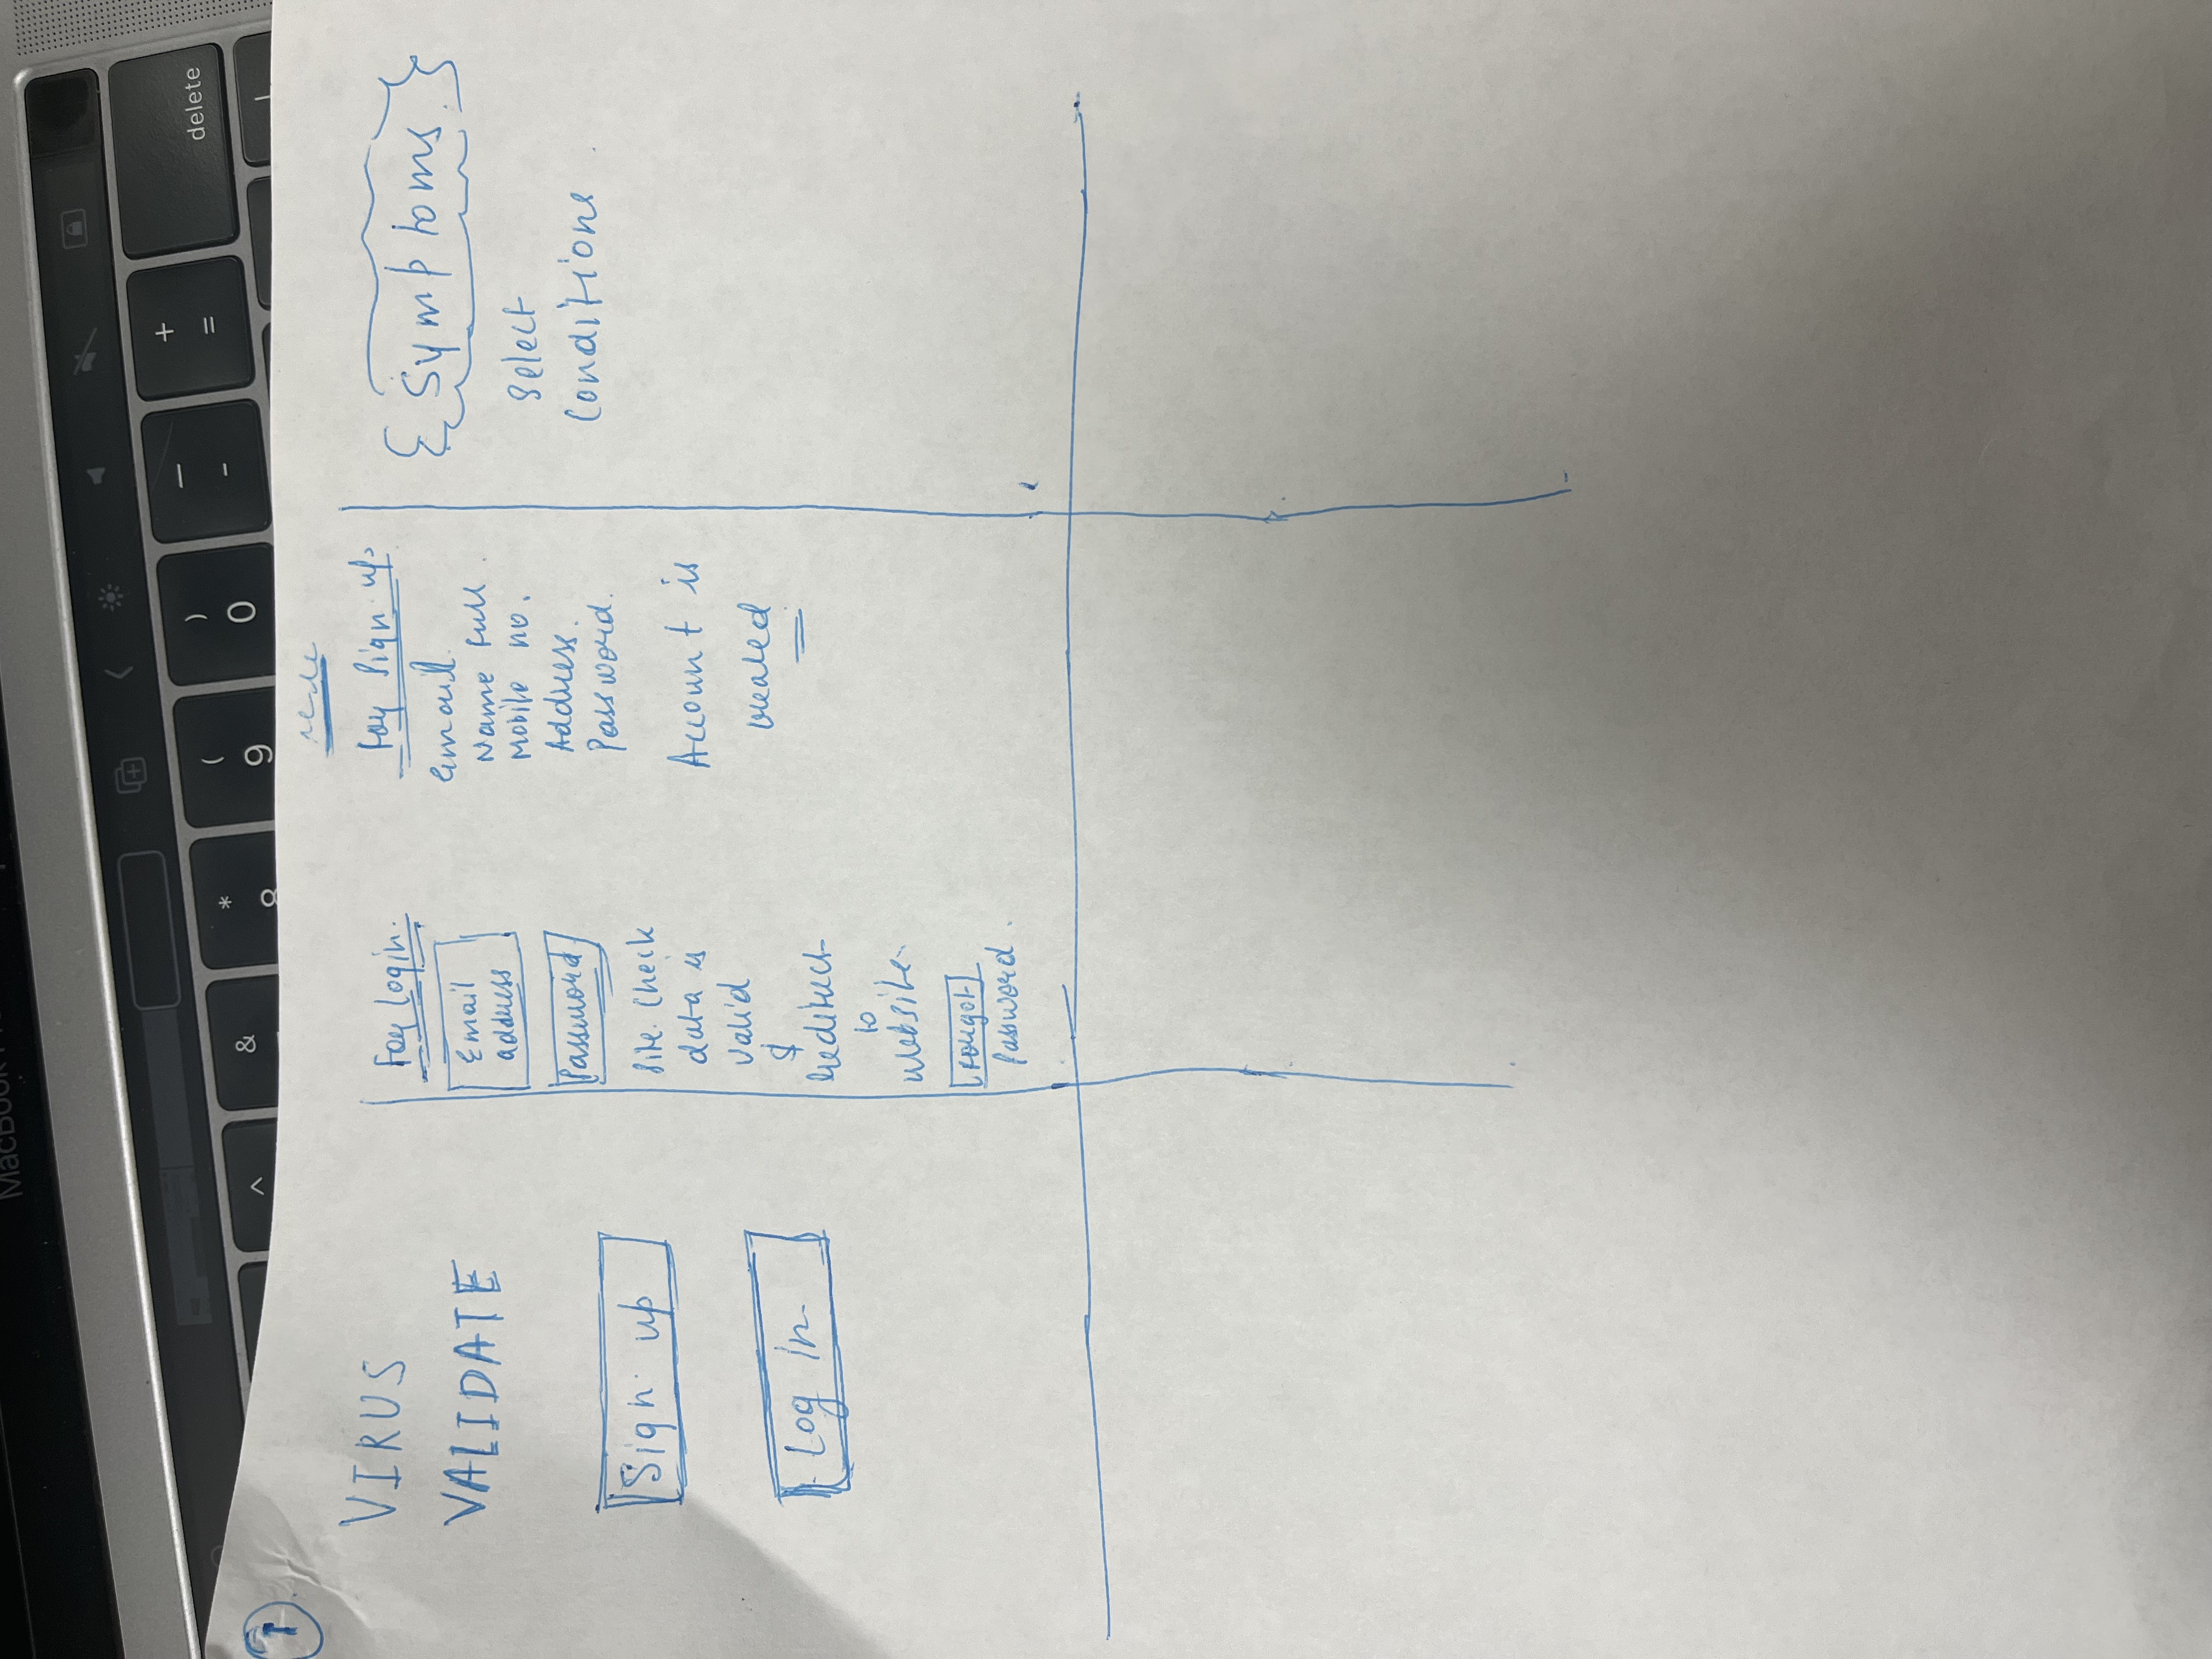 MacBook
delete
^
&
*
8
(
9
)
0
—
-
+
=
1
VIRUS
VALIDATE
Sign up
Log in
For login.
Email
address
Password
Site Check
data is
valid
&
redirect
to
website
Forgot
Password.
For Sign up
Email.
Name Full.
Mobile no.
Address.
Password.
Account is
created
{Symptoms}
Select
Conditions